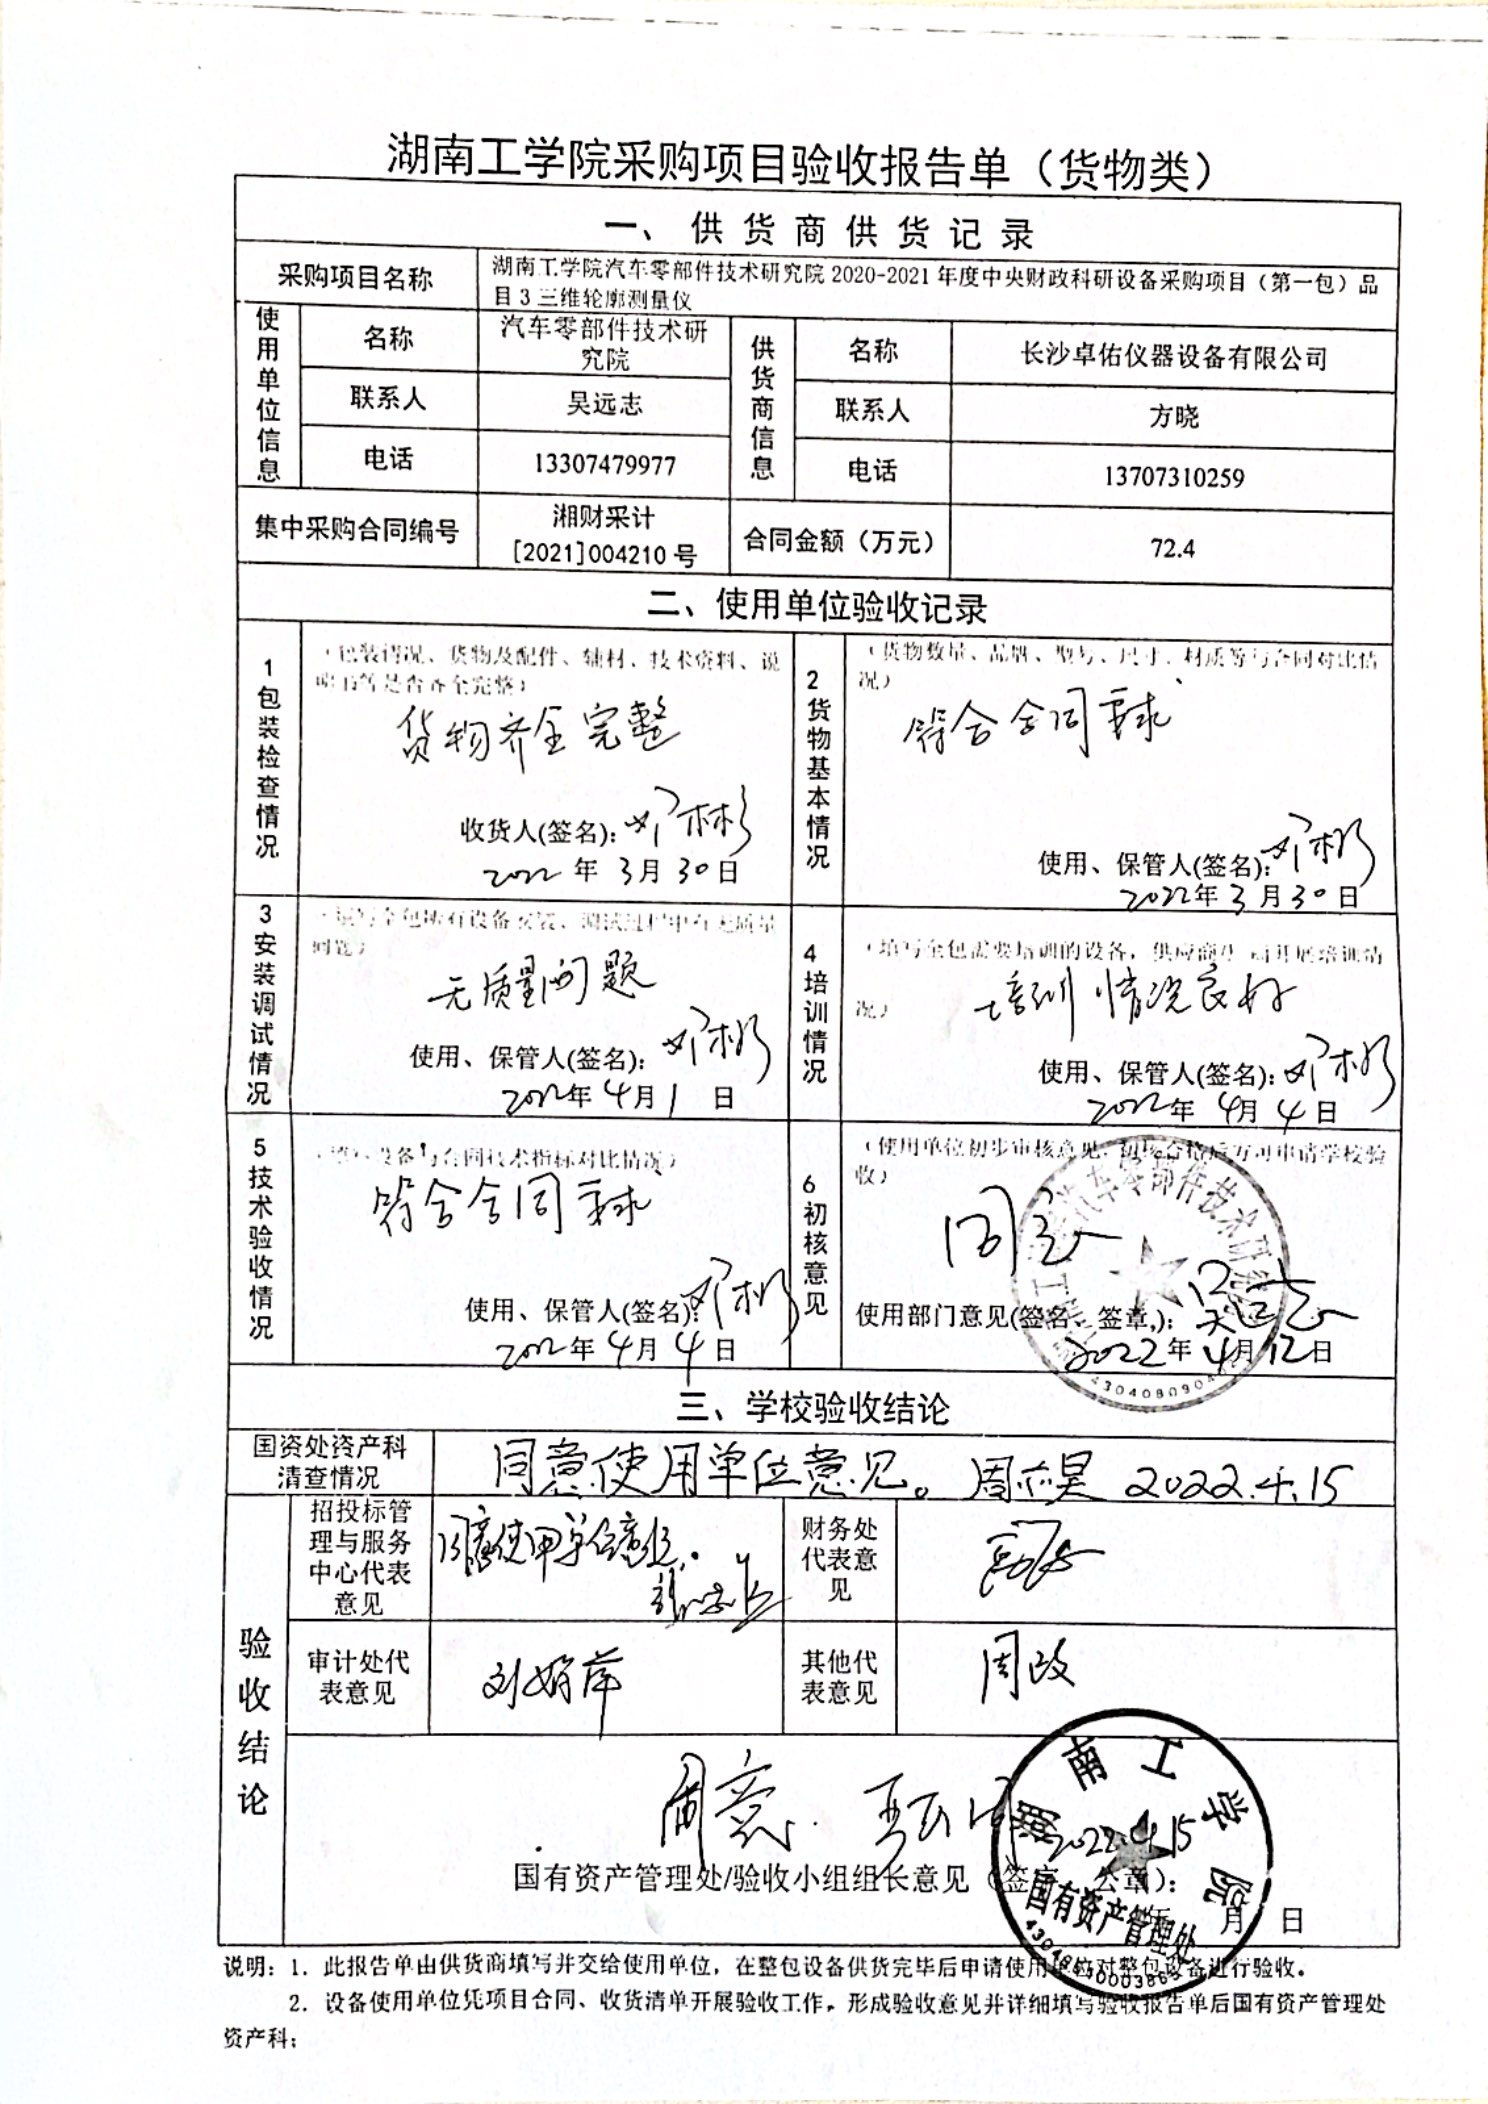 湖南工学院采购项目验收报告单（货物类）
一、供货商供货记录
采购项目名称
湖南工学院汽车零部件技术研究院 2020-2021 年度中央财政科研设备采购项目（第一包）品
目 3 三维轮廓测量仪
使用单位信息
名称
汽车零部件技术研
究院
供货商信息
名称
长沙卓佑仪器设备有限公司
联系人
吴远志
联系人
方晓
电话
13307479977
电话
13707310259
集中采购合同编号
湘财采计
[2021]004210 号
合同金额（万元）
72.4
二、使用单位验收记录
1包装检查情况
（包装情况、货物及配件、辅材、技术资料、说
明书等是否齐全完整）
货物齐全完整
收货人(签名)：邓彬彬
2022 年 3 月 30 日
2货物基本情况
（货物数量、品牌、型号、尺寸、材质等与合同对比情
况）
符合合同要求
使用、保管人(签名)：
2022 年 3 月 30 日
3安装调试情况
（填写全包所有设备安装、调试过程中有无质量
问题）
无质量问题
使用、保管人(签名)：
2022年 4 月 1 日
4培训情况
（填写全包需要培训的设备，供应商
开展培训情
况）
培训情况良好
使用、保管人(签名)：
2022年 4月 4 日
5技术验收情况
设备与合同技术指标对比情况）
符合合同要求
使用、保管人(签名)：
2022年 4 月 4 日
6初核意见
（使用单位初步审核意见，初核合格后方可申请学校验
收）
同意
使用部门意见(签名、签章,)：吴远志
2022 年 4 月 12 日
汽车零部件技术研究院
三、学校验收结论
国资处资产科
清查情况
同意使用单位意见。周
昊 2022.4.15
验收结论
招投标管
理与服务
中心代表
意见
同意使用单位意见.
财务处
代表意
见
审计处代
表意见
刘娟萍
其他代
表意见
周政
同意.
2022.4.15
国有资产管理处/验收小组组长意见（签字、公章）：
年 月 日
湖南工学院
国有资产管理处
说明：1. 此报告单由供货商填写并交给使用单位，在整包设备供货完毕后申请使用单位对整包设备进行验收。
2. 设备使用单位凭项目合同、收货清单开展验收工作，形成验收意见并详细填写验收报告单后国有资产管理处
资产科;